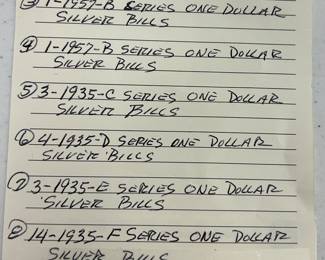 ③ 1-1957-B SERIES ONE DOLLAR
SILVER BILLS
④ 1-1957-B SERIES ONE DOLLAR
SILVER BILLS
⑤ 3-1935-C SERIES ONE DOLLAR
SILVER BILLS
⑥ 4-1935-D SERIES ONE DOLLAR
SILVER BILLS
⑦ 3-1935-E SERIES ONE DOLLAR
SILVER BILLS
⑧ 14-1935-F SERIES ONE DOLLAR
SILVER BILLS